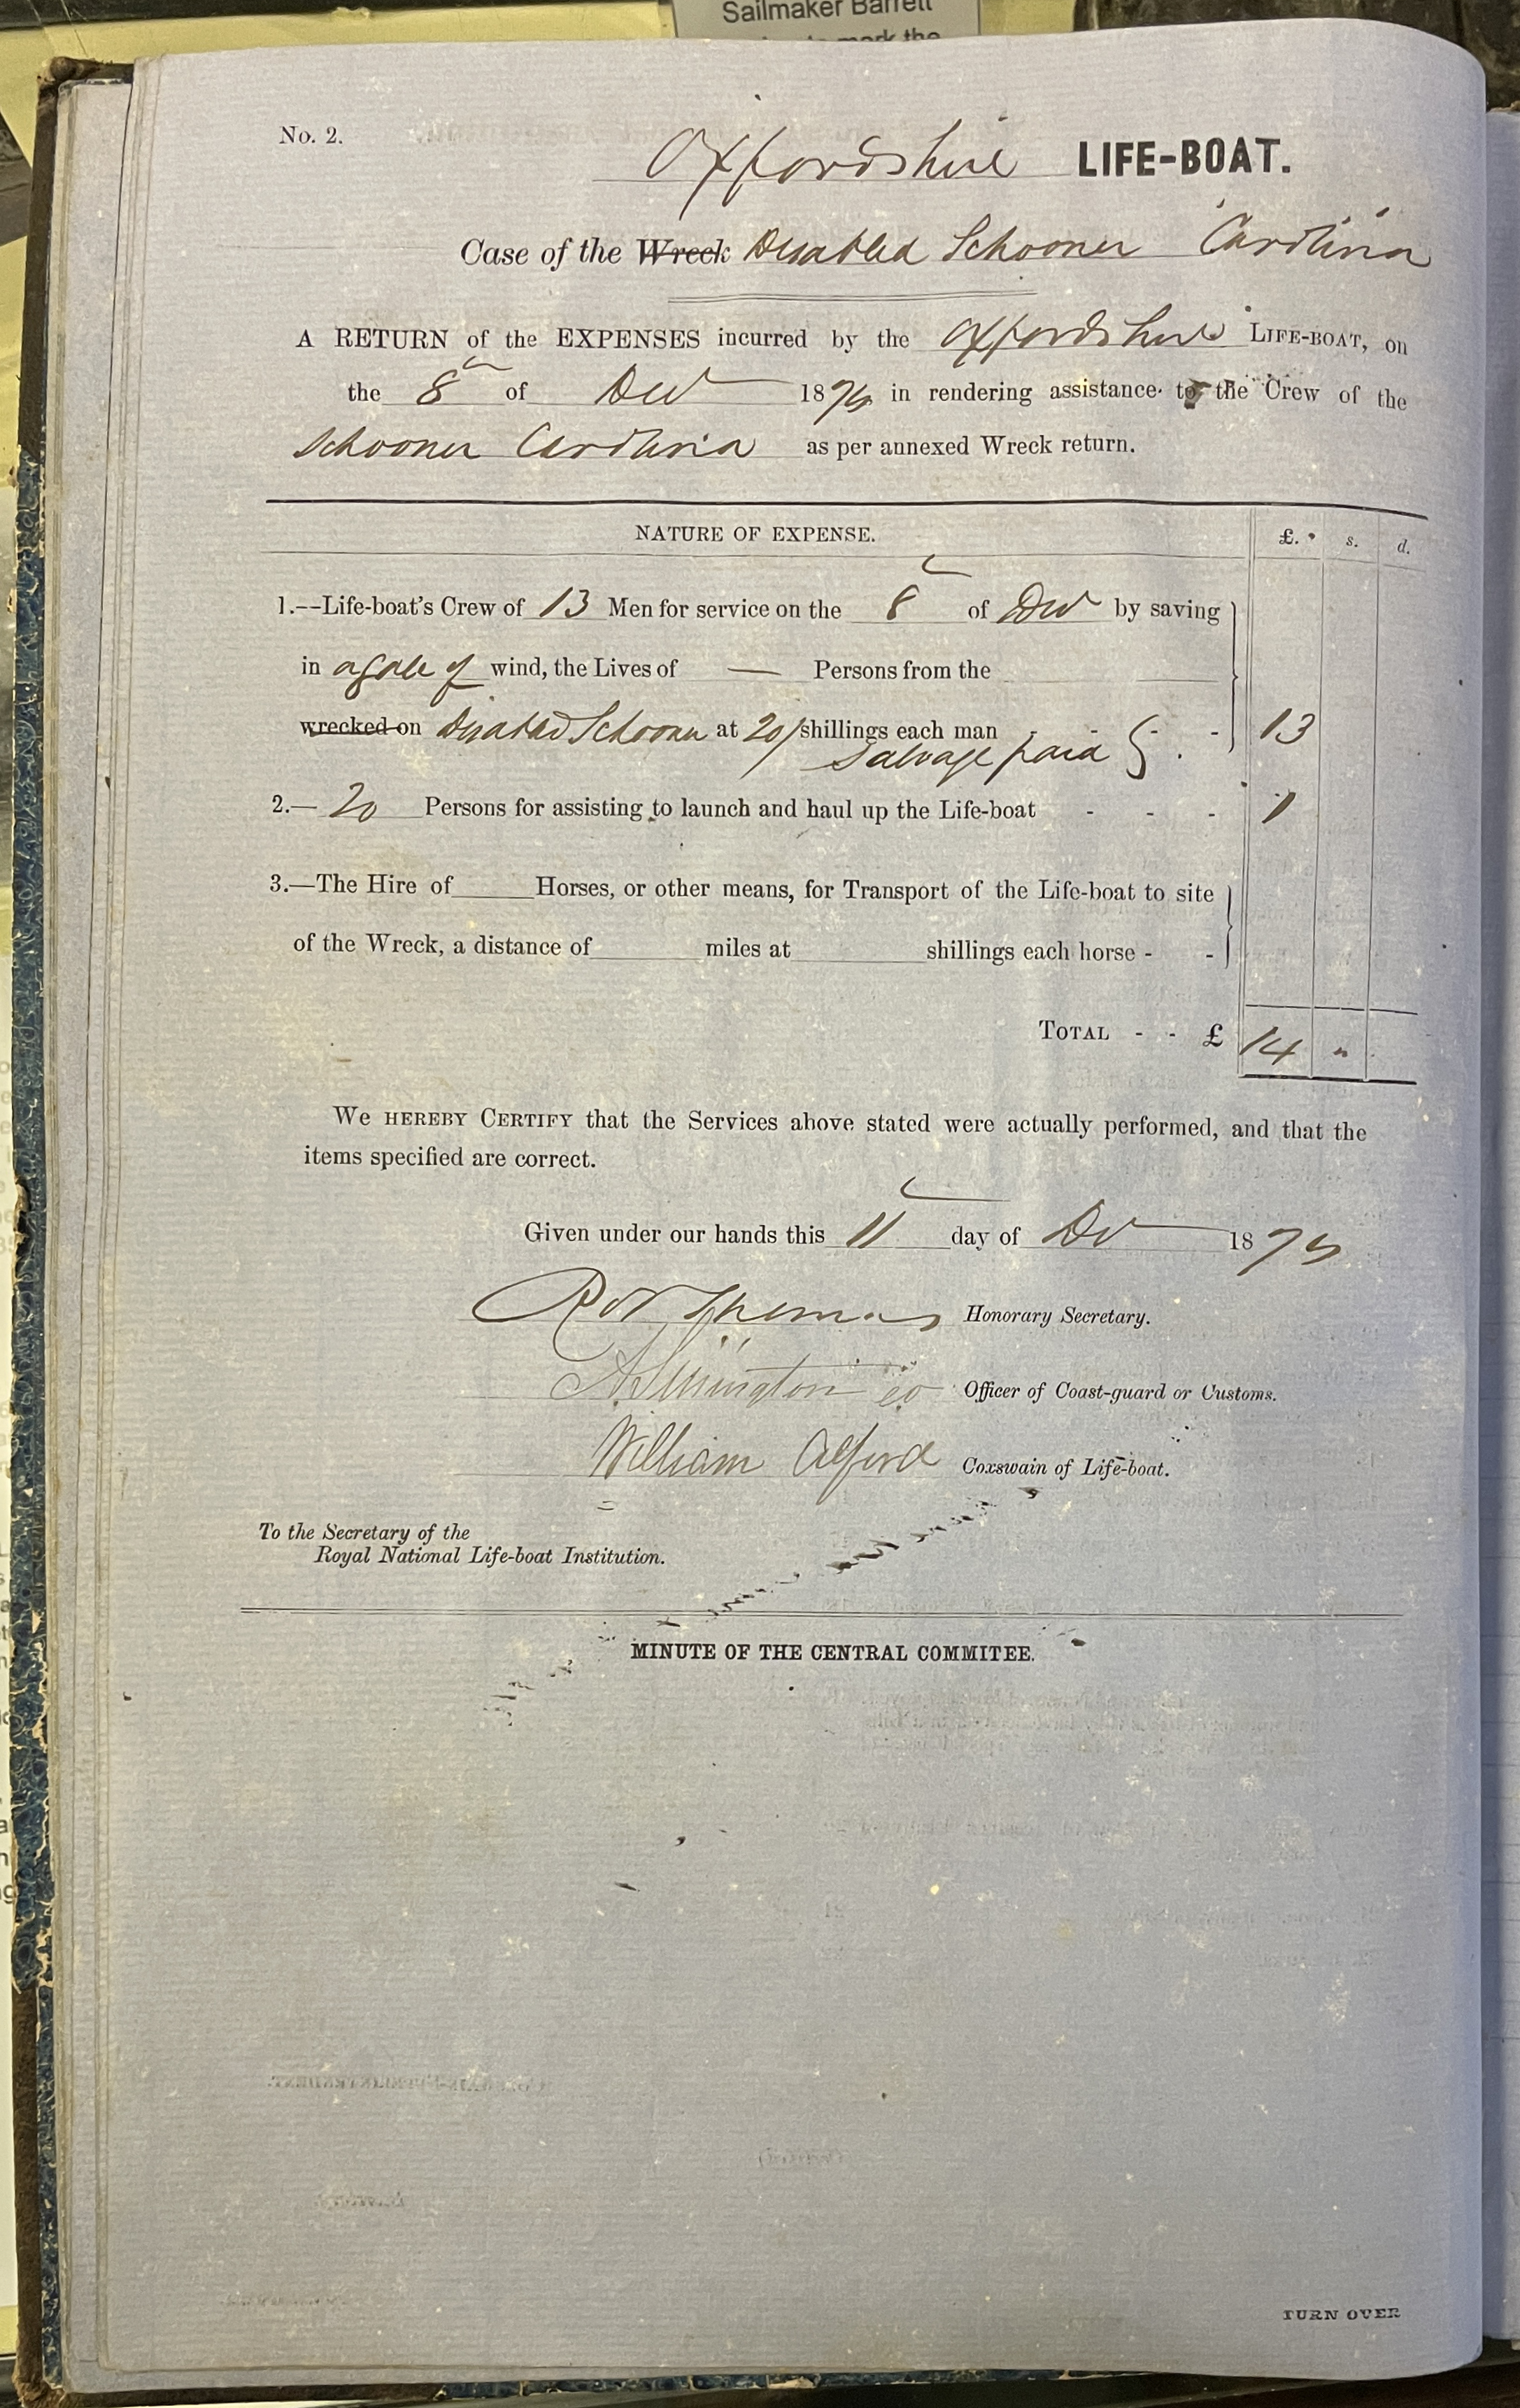 Sailmaker Barrett
mark the
No. 2.
Oxfordshire LIFE-BOAT.
Case of the Wreck Disabled Schooner Carolina
A RETURN of the EXPENSES incurred by the Oxfordshire LIFE-BOAT, on
the 8 of Dec 187 in rendering assistance to the Crew of the
Schooner Carolina as per annexed Wreck return.
NATURE OF EXPENSE. £. s. d.
1.--Life-boat's Crew of 13 Men for service on the 8 of Dec by saving
in a gale of wind, the Lives of — Persons from the
wrecked on disabled Schooner at 20/ shillings each man - - - 13
Salvage paid
2.— 20 Persons for assisting to launch and haul up the Life-boat - - - 1
3.—The Hire of Horses, or other means, for Transport of the Life-boat to site
of the Wreck, a distance of miles at shillings each horse - -
TOTAL - - £ 14 "
We HEREBY CERTIFY that the Services above stated were actually performed, and that the
items specified are correct.
Given under our hands this 11 day of Dec 187
Thomas Honorary Secretary.
Officer of Coast-guard or Customs.
William Alford Coxswain of Life-boat.
To the Secretary of the
Royal National Life-boat Institution.
MINUTE OF THE CENTRAL COMMITEE.
TURN OVER